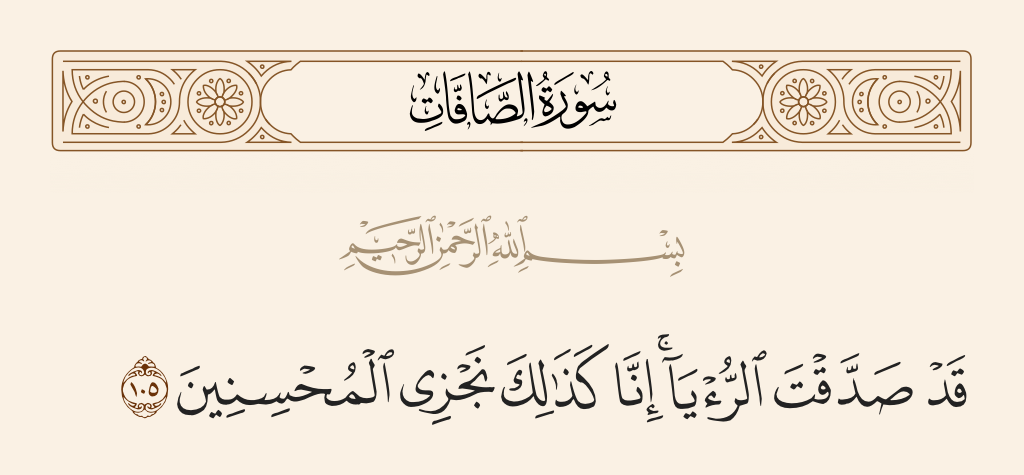 سُورَةُ الصَّافَّاتِ
بِسْمِ ٱللَّهِ ٱلرَّحْمَٰنِ ٱلرَّحِيمِ
قَدْ صَدَّقْتَ ٱلرُّءْيَآ ۚ إِنَّا كَذَٰلِكَ نَجْزِى ٱلْمُحْسِنِينَ ١٠٥